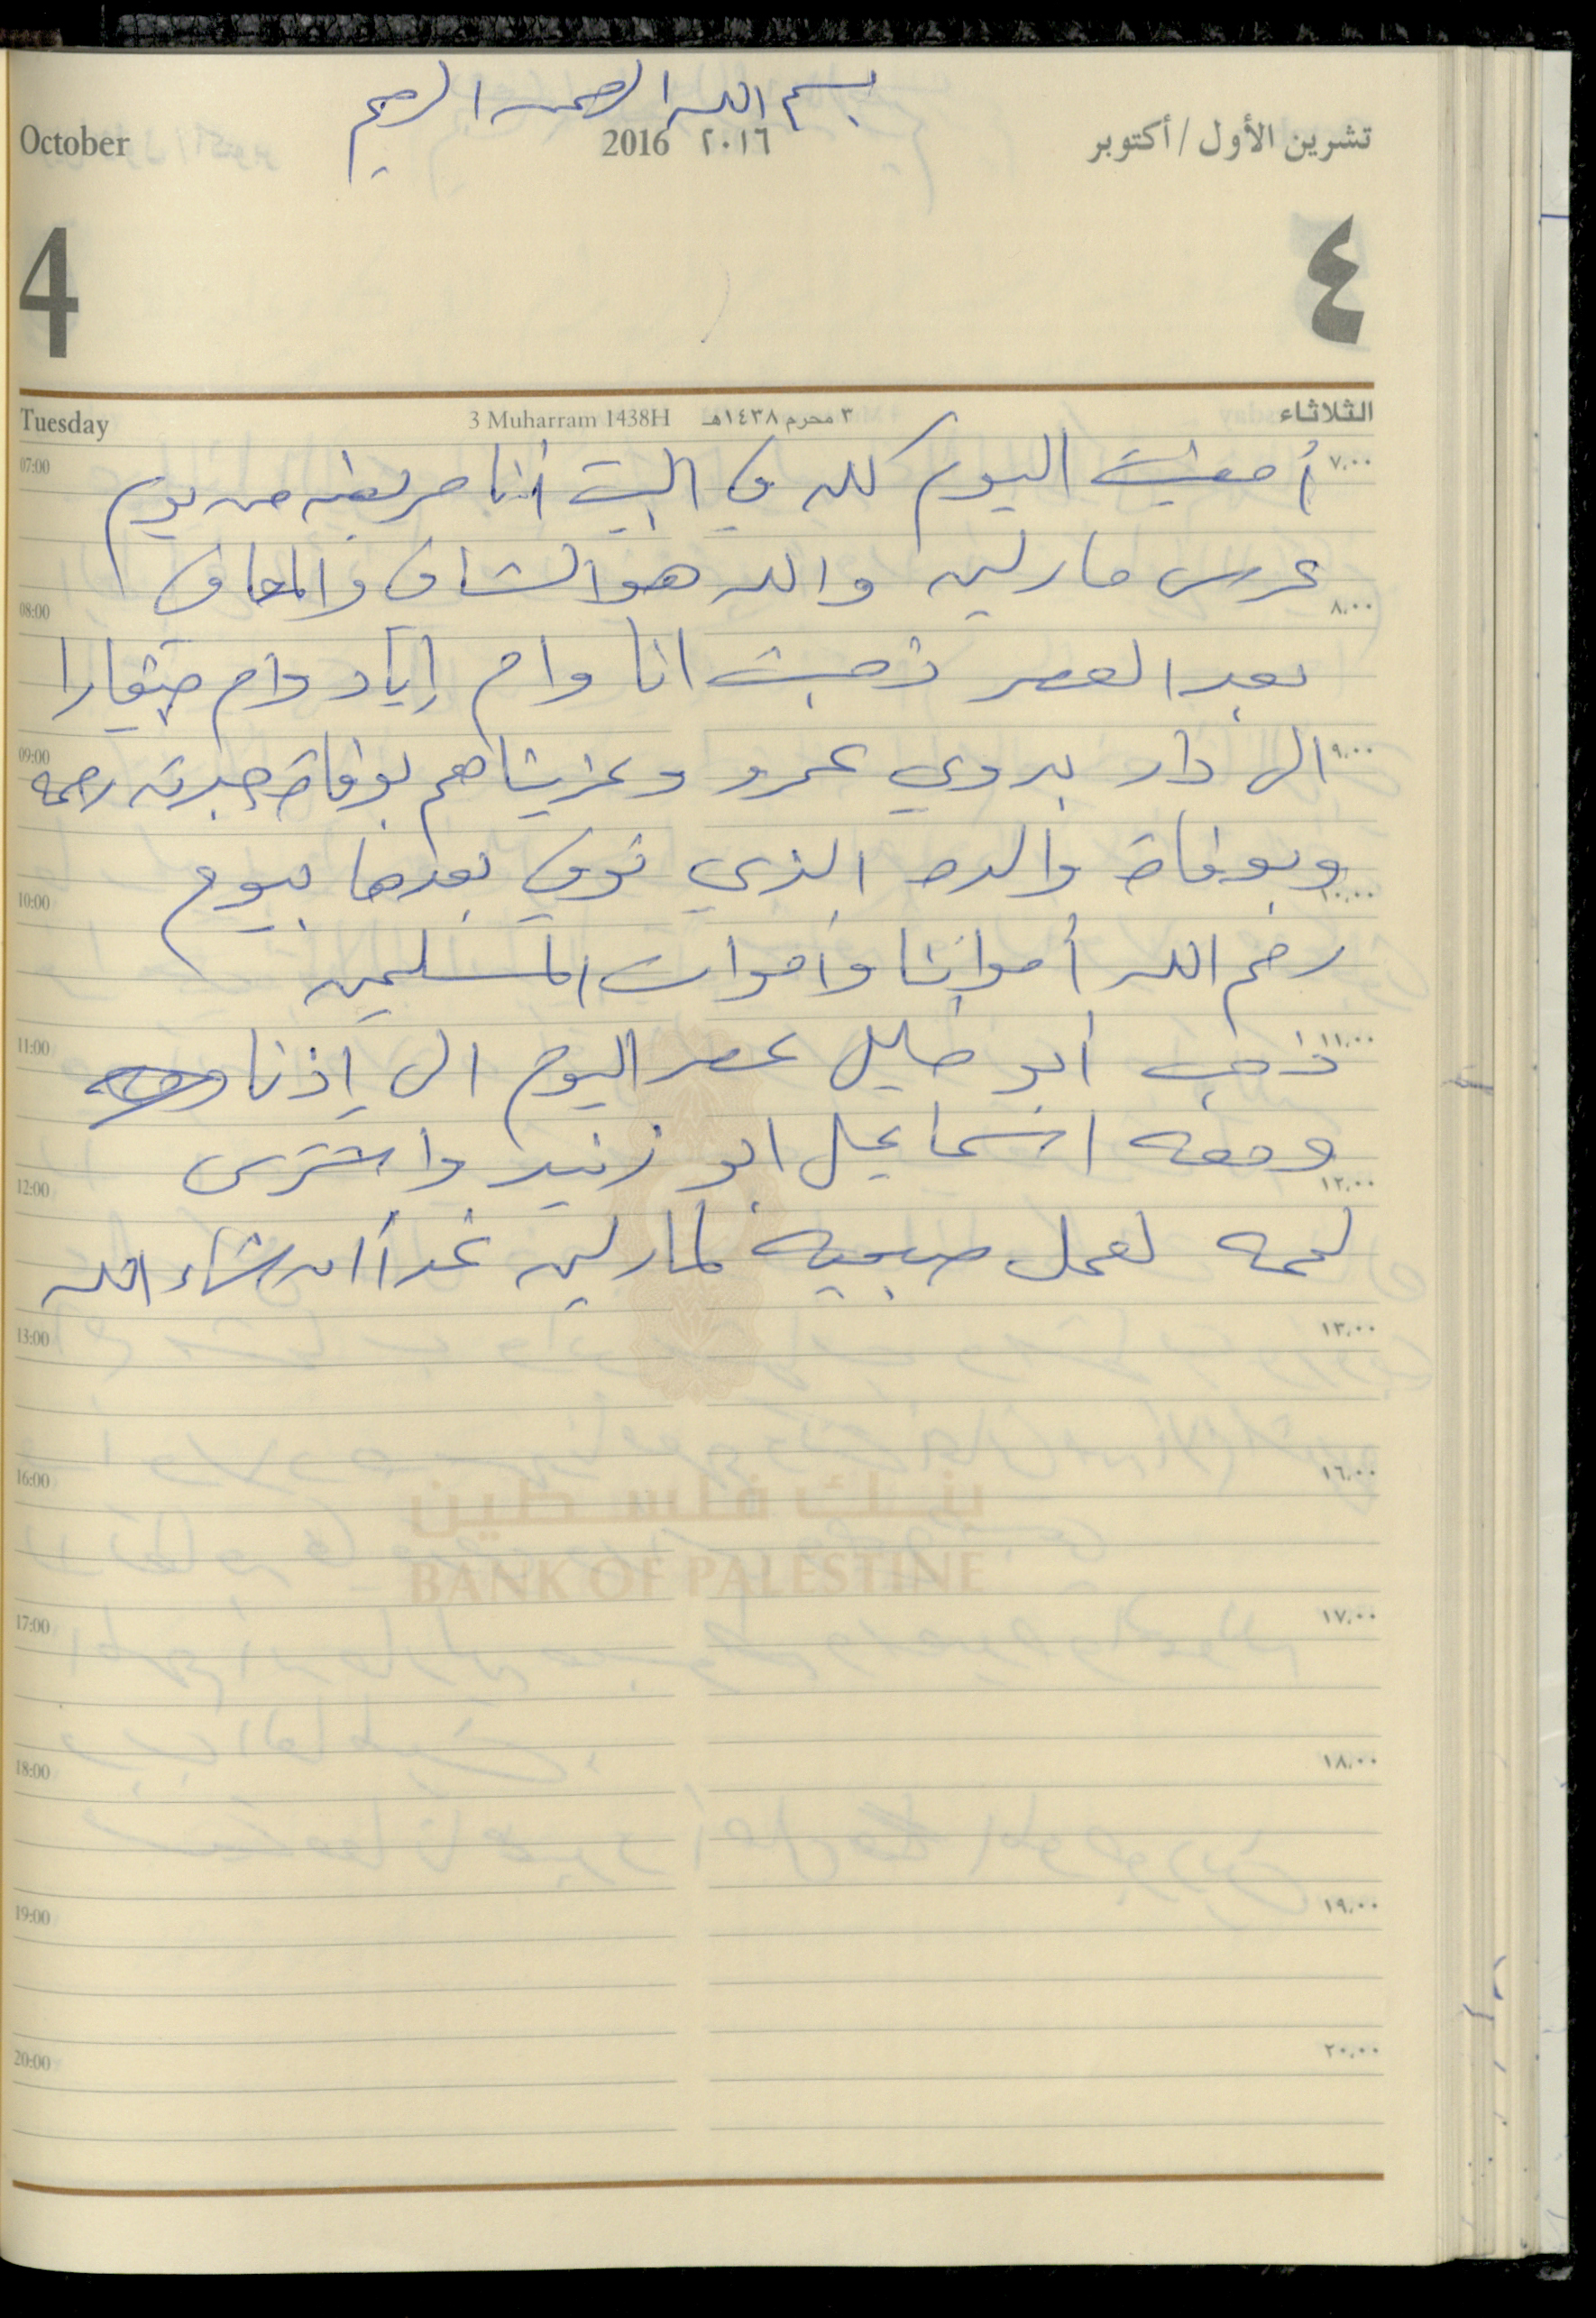 بسم الله الرحمن الرحيم
October 2016 ٢٠١٦ تشرين الأول / أكتوبر
4 ٤
Tuesday 3 Muharram 1438H ٣ محرم ١٤٣٨هـ الثلاثاء
07:00 أمضيت اليوم كله في البيت أنا مريضه من يوم ٧,٠٠
عرس مارلين والله هو الشافي والمعافي
08:00 ٨,٠٠
بعد العصر ذهبت انا وام إياد وام
09:00 الى دار بدوي عمرو وعزيناهم بوفاة جدته رحمه ٩,٠٠
وبوفاة والده الذي توفي بعدها بيوم
10:00 ١٠,٠٠
رحم الله أمواتنا وأموات المسلمين
11:00 ذهب أبو خليل عصر اليوم الى إذنا ١١,٠٠
ومعه اسماعيل ابو زنيد واشترى
12:00 ١٢,٠٠
لحمه لعمل صبحيه لمارلين غداً ان شاء الله
13:00 ١٣,٠٠
16:00 ١٦,٠٠
بنك فلسطين
BANK OF PALESTINE
17:00 ١٧,٠٠
18:00 ١٨,٠٠
19:00 ١٩,٠٠
20:00 ٢٠,٠٠